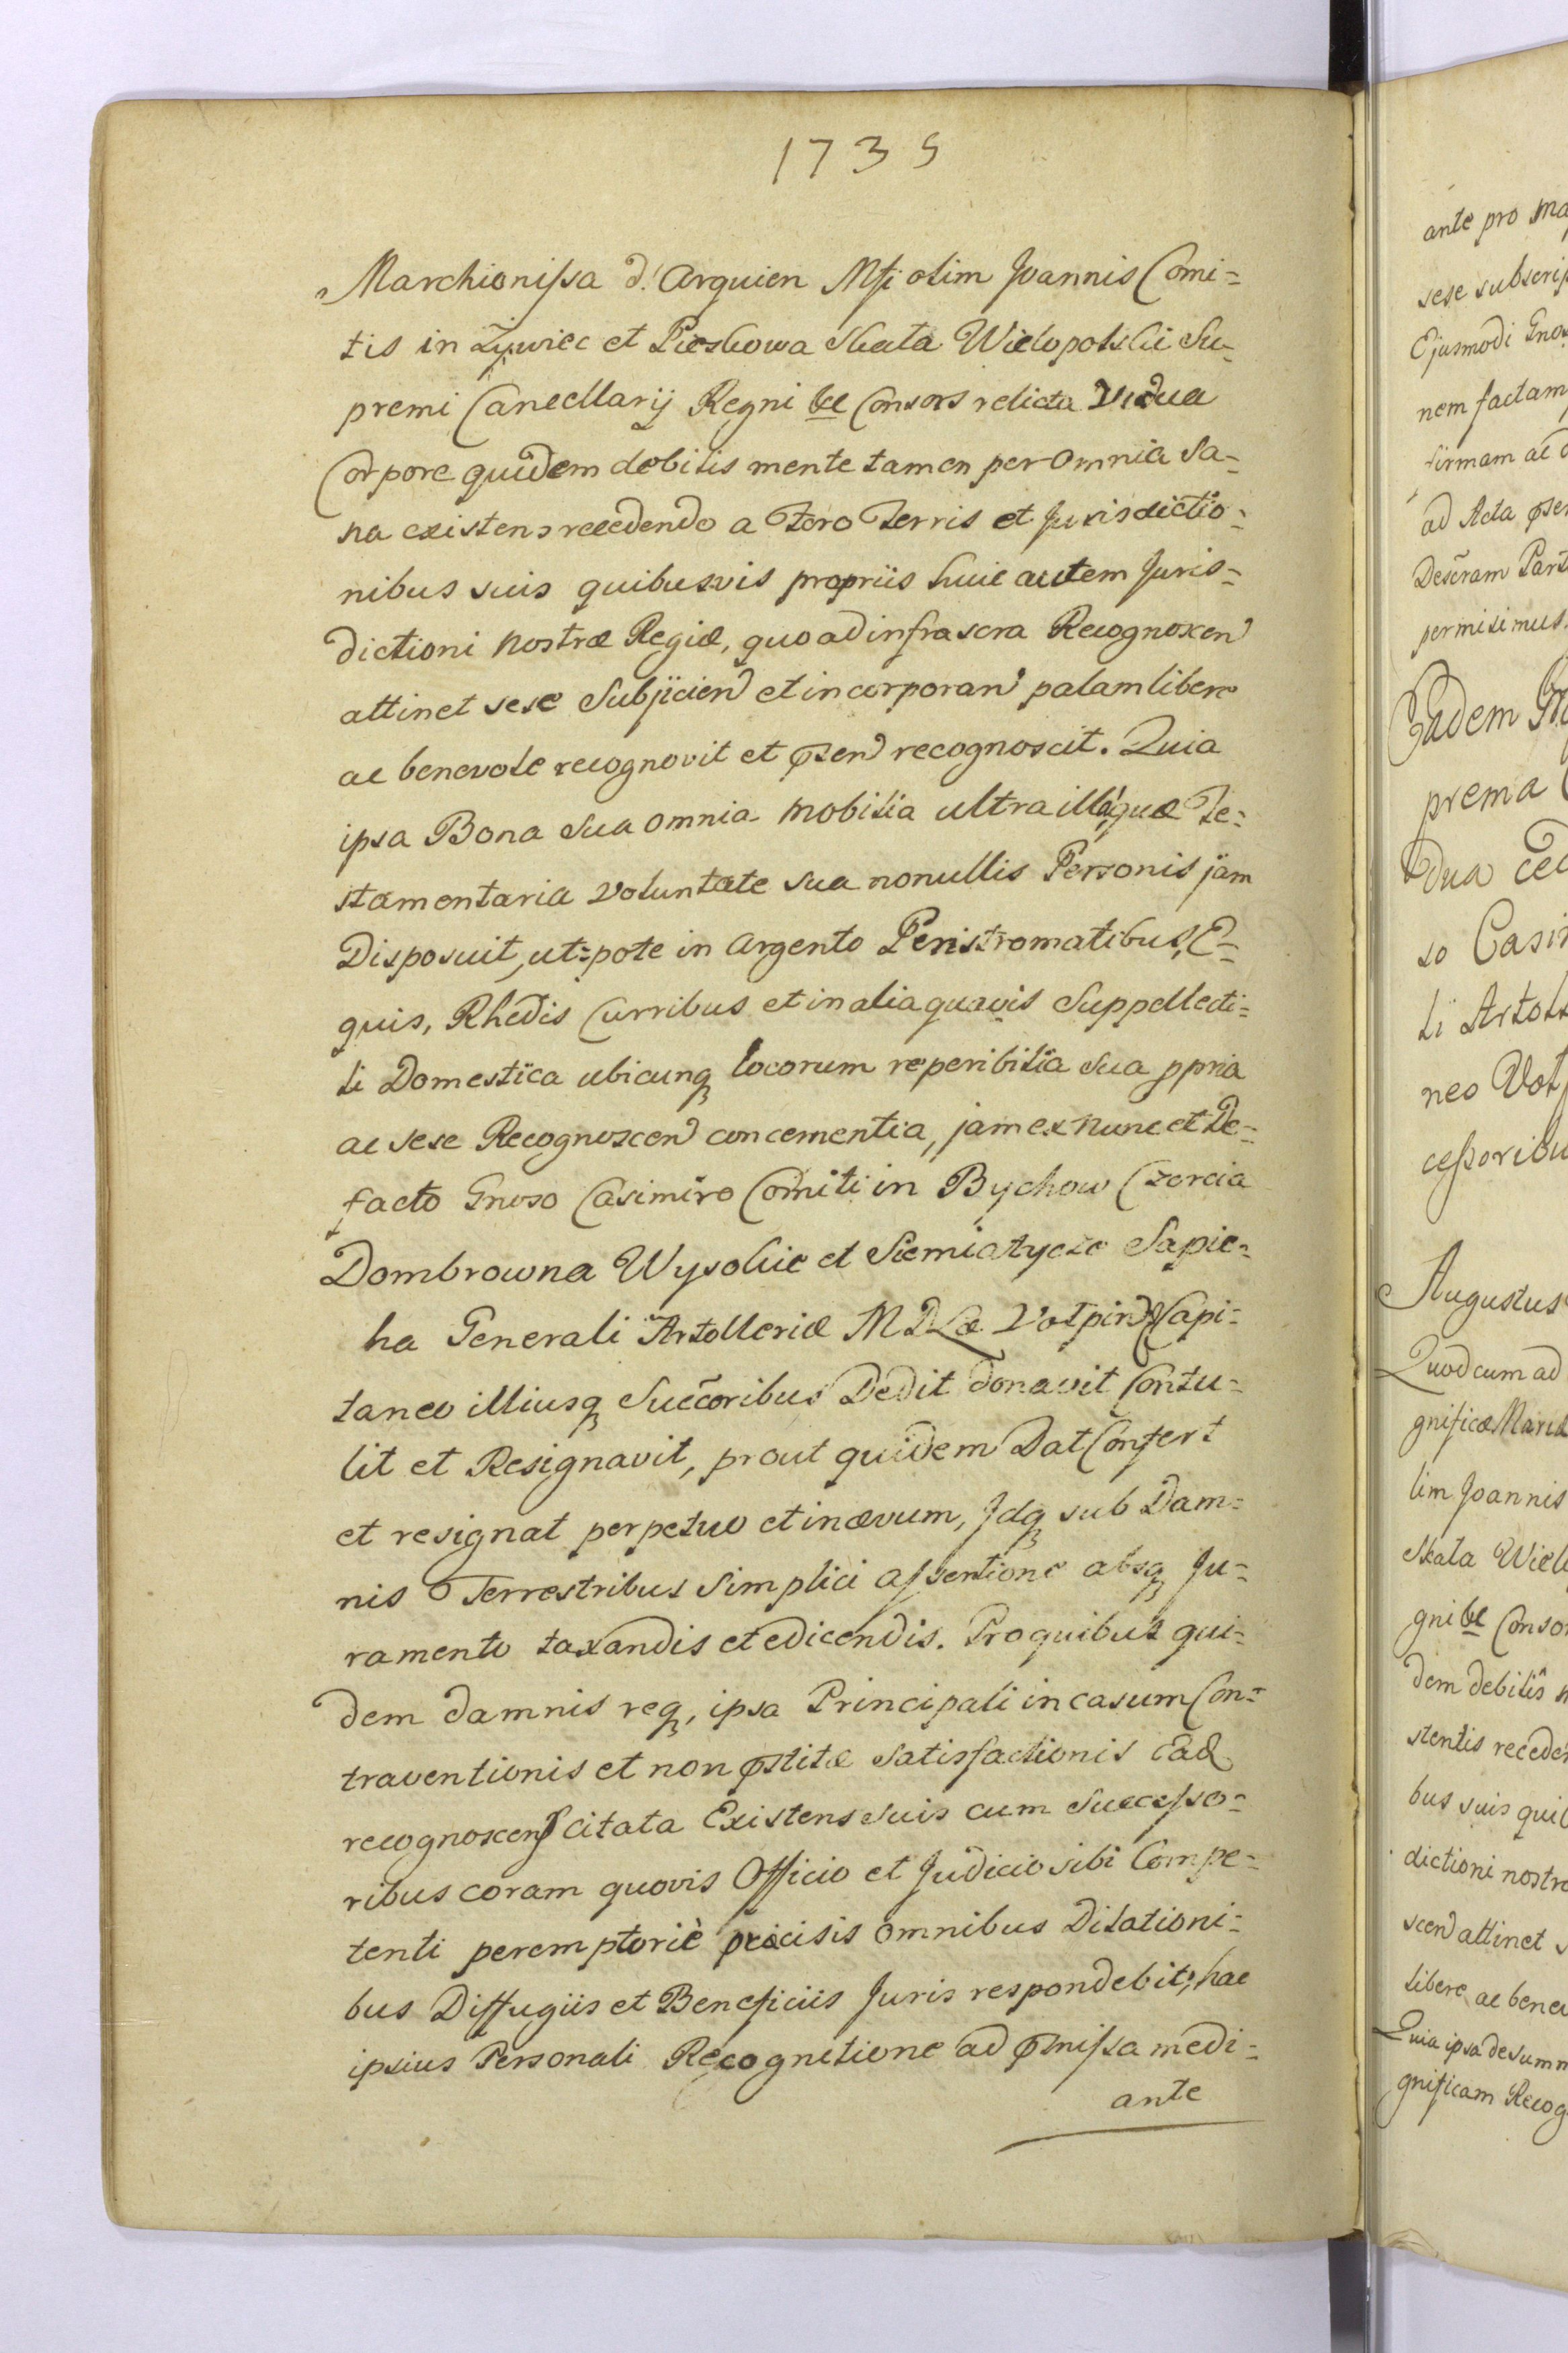 1735
Marchionissa d'Arquien Msci olim Joannis Comi=
tis in Żywiec et Pieskowa Skała Wielopolski Su-
premi Cancellarij Regni &c Consors relicta Vidua
Corpore quidem debilis mente tamen per omnia Sa=
na existens recedendo a Foro Terris et Jurisdictio=
nibus suis quibusvis propriis huic autem Juris=
dictioni nostræ Regiæ, quoad infrascra Recognoscen
attinet sese Subjicien et incorporan palam libere
ac benevole recognovit et pñsen recognoscit. Quia
ipsa Bona Sua omnia mobilia ultra illa, quæ Te=
stamentaria voluntate sua nonullis Personis jam
Disposuit, ut=pote in argento Peristromatibus, E=
quis, Rhedis Curribus et in alia quavis Suppellecti=
li Domestica ubicunq locorum reperibilia sua ppria
ac sese Recognoscen concernentia, jam ex nunc et De=
facto Gnoso Casimiro Comiti in Bychow Czercia
Dombrowna Wysokie et Siemiatycze Sapie=
ha Generali Artolleriæ M D L Volpin Capi=
taneo illiusq Succoribus Dedit donavit Contu=
lit et Resignavit, prout quidem Dat Confert
et resignat perpetuo et in ævum, Jdq sub Dam=
nis Terrestribus Simplici assertione absq Ju=
ramento taxandis et edicendis. Pro quibus qui=
dem damnis req, ipsa Principali in casum Con=
traventionis et non pstitæ Satisfactionis Ead
recognoscens citata Existens suis cum Successo=
ribus coram quovis Officio et Judicio sibi Compe=
tenti peremptoriè præcisis omnibus Dilationi=
bus Diffugiis et Beneficiis Juris respondebit, hac
ipsius Personali Recognitione ad pmissa medi=
ante
ante pro
sese
Ejusmodi
nem factam
firmam ac
ad Acta
Partis
permisimus.
Eadem
prema
dua
so
li
neo
cessoribus
Augustus
Quod cum ad
gnificæ Mariæ
lim Joannis
Skała
gni &c
dem debilis
stentis
bus suis
dictioni nostræ
scen attinet
libere ac
Quia ipsa de
gnificam